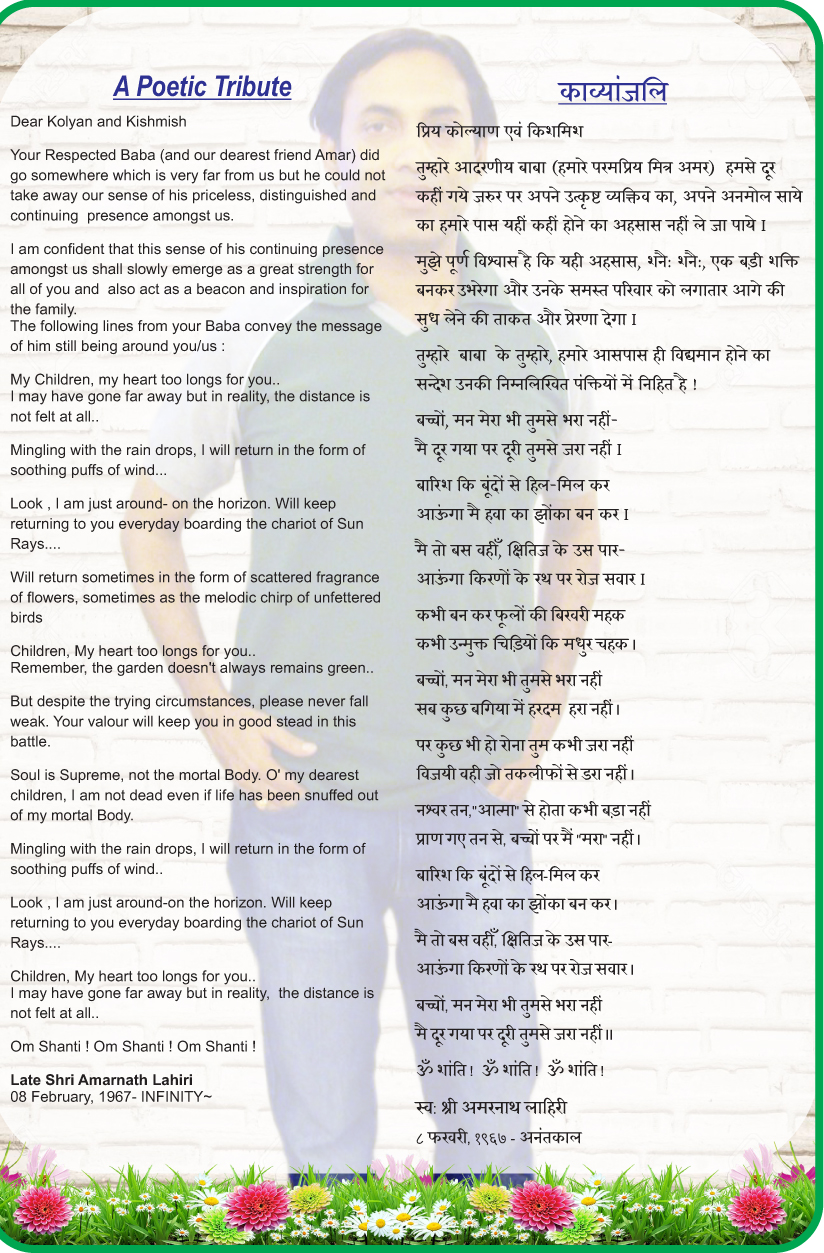 A Poetic Tribute
Dear Kolyan and Kishmish
Your Respected Baba (and our dearest friend Amar) did
go somewhere which is very far from us but he could not
take away our sense of his priceless, distinguished and
continuing presence amongst us.
I am confident that this sense of his continuing presence
amongst us shall slowly emerge as a great strength for
all of you and also act as a beacon and inspiration for
the family.
The following lines from your Baba convey the message
of him still being around you/us :
My Children, my heart too longs for you..
I may have gone far away but in reality, the distance is
not felt at all..
Mingling with the rain drops, I will return in the form of
soothing puffs of wind...
Look , I am just around- on the horizon. Will keep
returning to you everyday boarding the chariot of Sun
Rays....
Will return sometimes in the form of scattered fragrance
of flowers, sometimes as the melodic chirp of unfettered
birds
Children, My heart too longs for you..
Remember, the garden doesn't always remains green..
But despite the trying circumstances, please never fall
weak. Your valour will keep you in good stead in this
battle.
Soul is Supreme, not the mortal Body. O' my dearest
children, I am not dead even if life has been snuffed out
of my mortal Body.
Mingling with the rain drops, I will return in the form of
soothing puffs of wind..
Look , I am just around-on the horizon. Will keep
returning to you everyday boarding the chariot of Sun
Rays....
Children, My heart too longs for you..
I may have gone far away but in reality, the distance is
not felt at all..
Om Shanti ! Om Shanti ! Om Shanti !
Late Shri Amarnath Lahiri
08 February, 1967- INFINITY~
काव्यांजलि
प्रिय कोल्याण एवं किशमिश
तुम्हारे आदरणीय बाबा (हमारे परमप्रिय मित्र अमर) हमसे दूर
कहीं गये जरुर पर अपने उत्कृष्ट व्यक्तिव का, अपने अनमोल साये
का हमारे पास यहीं कहीं होने का अहसास नहीं ले जा पाये I
मुझे पूर्ण विश्वास है कि यही अहसास, शनै: शनै:, एक बड़ी शक्ति
बनकर उभरेगा और उनके समस्त परिवार को लगातार आगे की
सुध लेने की ताकत और प्रेरणा देगा I
तुम्हारे बाबा के तुम्हारे, हमारे आसपास ही विद्यमान होने का
सन्देश उनकी निम्नलिखित पंक्तियों में निहित है !
बच्चों, मन मेरा भी तुमसे भरा नहीं-
मै दूर गया पर दूरी तुमसे जरा नहीं I
बारिश कि बूंदों से हिल-मिल कर
आऊंगा मै हवा का झोंका बन कर I
मै तो बस वहीँ, क्षितिज के उस पार-
आऊंगा किरणों के रथ पर रोज सवार I
कभी बन कर फूलों की बिखरी महक
कभी उन्मुक्त चिड़ियों कि मधुर चहक।
बच्चों, मन मेरा भी तुमसे भरा नहीं
सब कुछ बगिया में हरदम हरा नहीं।
पर कुछ भी हो रोना तुम कभी जरा नहीं
विजयी वही जो तकलीफों से डरा नहीं।
नश्वर तन,"आत्मा" से होता कभी बड़ा नहीं
प्राण गए तन से, बच्चों पर मैं "मरा" नहीं।
बारिश कि बूंदों से हिल-मिल कर
आऊंगा मै हवा का झोंका बन कर।
मै तो बस वहीँ, क्षितिज के उस पार-
आऊंगा किरणों के रथ पर रोज सवार।
बच्चों, मन मेरा भी तुमसे भरा नहीं
मै दूर गया पर दूरी तुमसे जरा नहीं॥
ॐ शांति ! ॐ शांति ! ॐ शांति !
स्व: श्री अमरनाथ लाहिरी
८ फरवरी, १९६७ - अनंतकाल